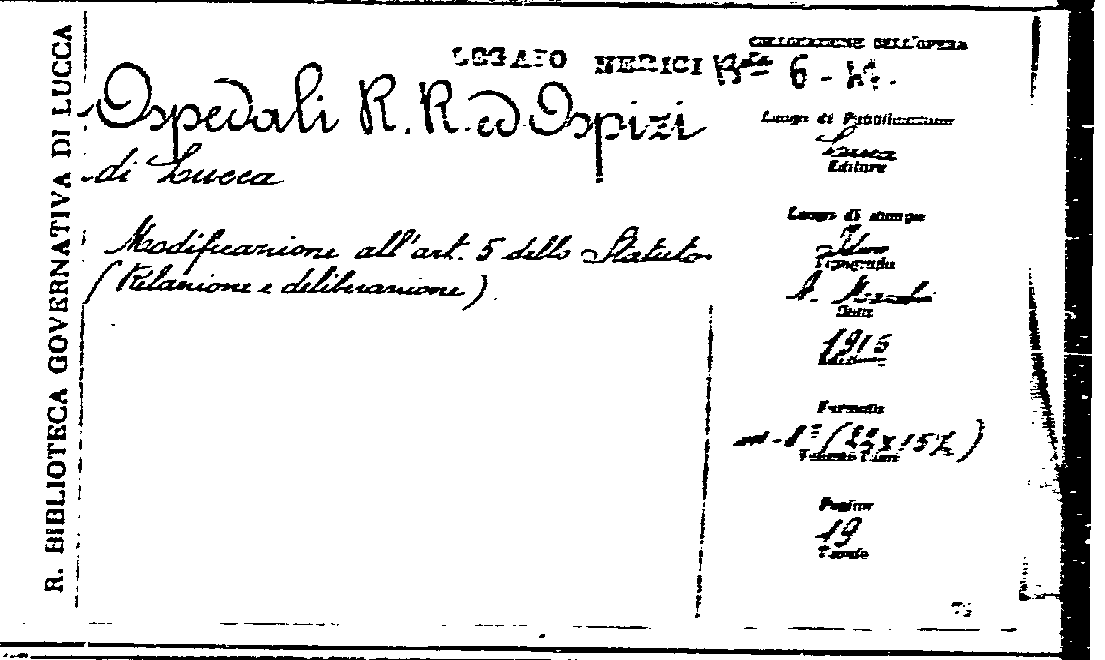 R. BIBLIOTECA GOVERNATIVA DI LUCCA
LEGATO NERICI
COLLOCAZIONE DELL'OPERA
Bta 6
Ospedali R. R. ed Ospizi
di Lucca
Modificazione all'art. 5 dello Statuto
(Relazione e deliberazione)
Luogo di Pubblicazione
Lucca
Editore
Luogo di stampa
Idem
Tipografia
Data
1915
Formato
Pagine
19
Tavole